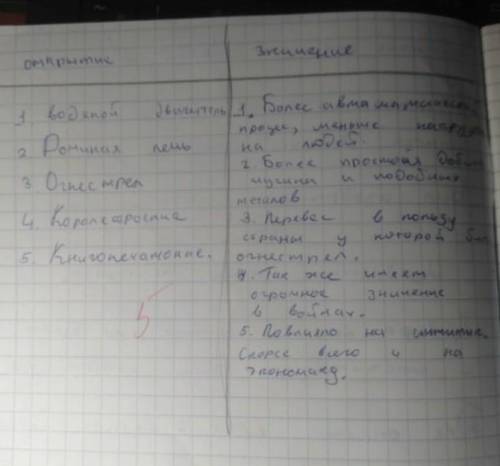 открытие
значение
1 водяной двигатель
2 Доминая печь
3 Огнестрел
4. Кораблестроение
5. Книгопечатание.
1. Более автоматический
проце, меньше нагрузк
на людей.
2. Более простой добыч
чугуна и подобных
металов
3. Перевес в пользу
страны у которой был
огнестрел.
4. Так же имеет
огромное значение
в войнах.
5. Повлияло на
Скорее всего и на
экономику.
5